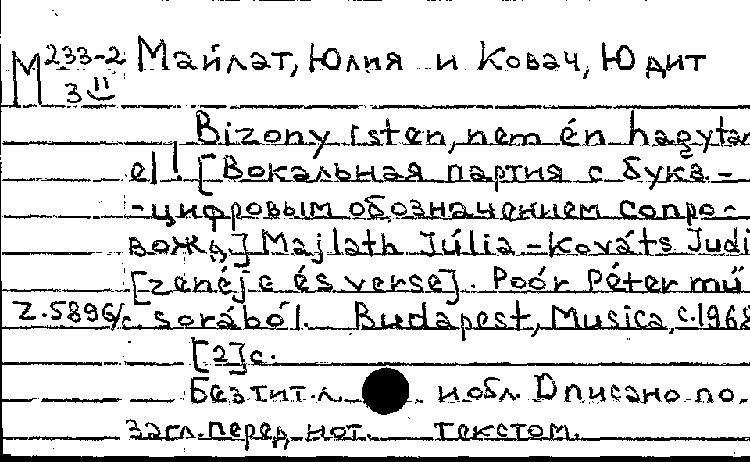 М 233-2 Майлат, Юлия и Ковач, Юдит
3 II
Bizony isten, nem én hagytam
el! [Вокальная партия с букв.-
-цифровым обозначением сопро-
вожд.] Majlath Júlia-Kováts Judi
[zenéje és verse]. Poór Péter mű
Z.5896/с. sorából. Budapest, Musica, с.1968
[2]с.
Без тит.л. и обл. Описано по
загл. перед нот. текстом.